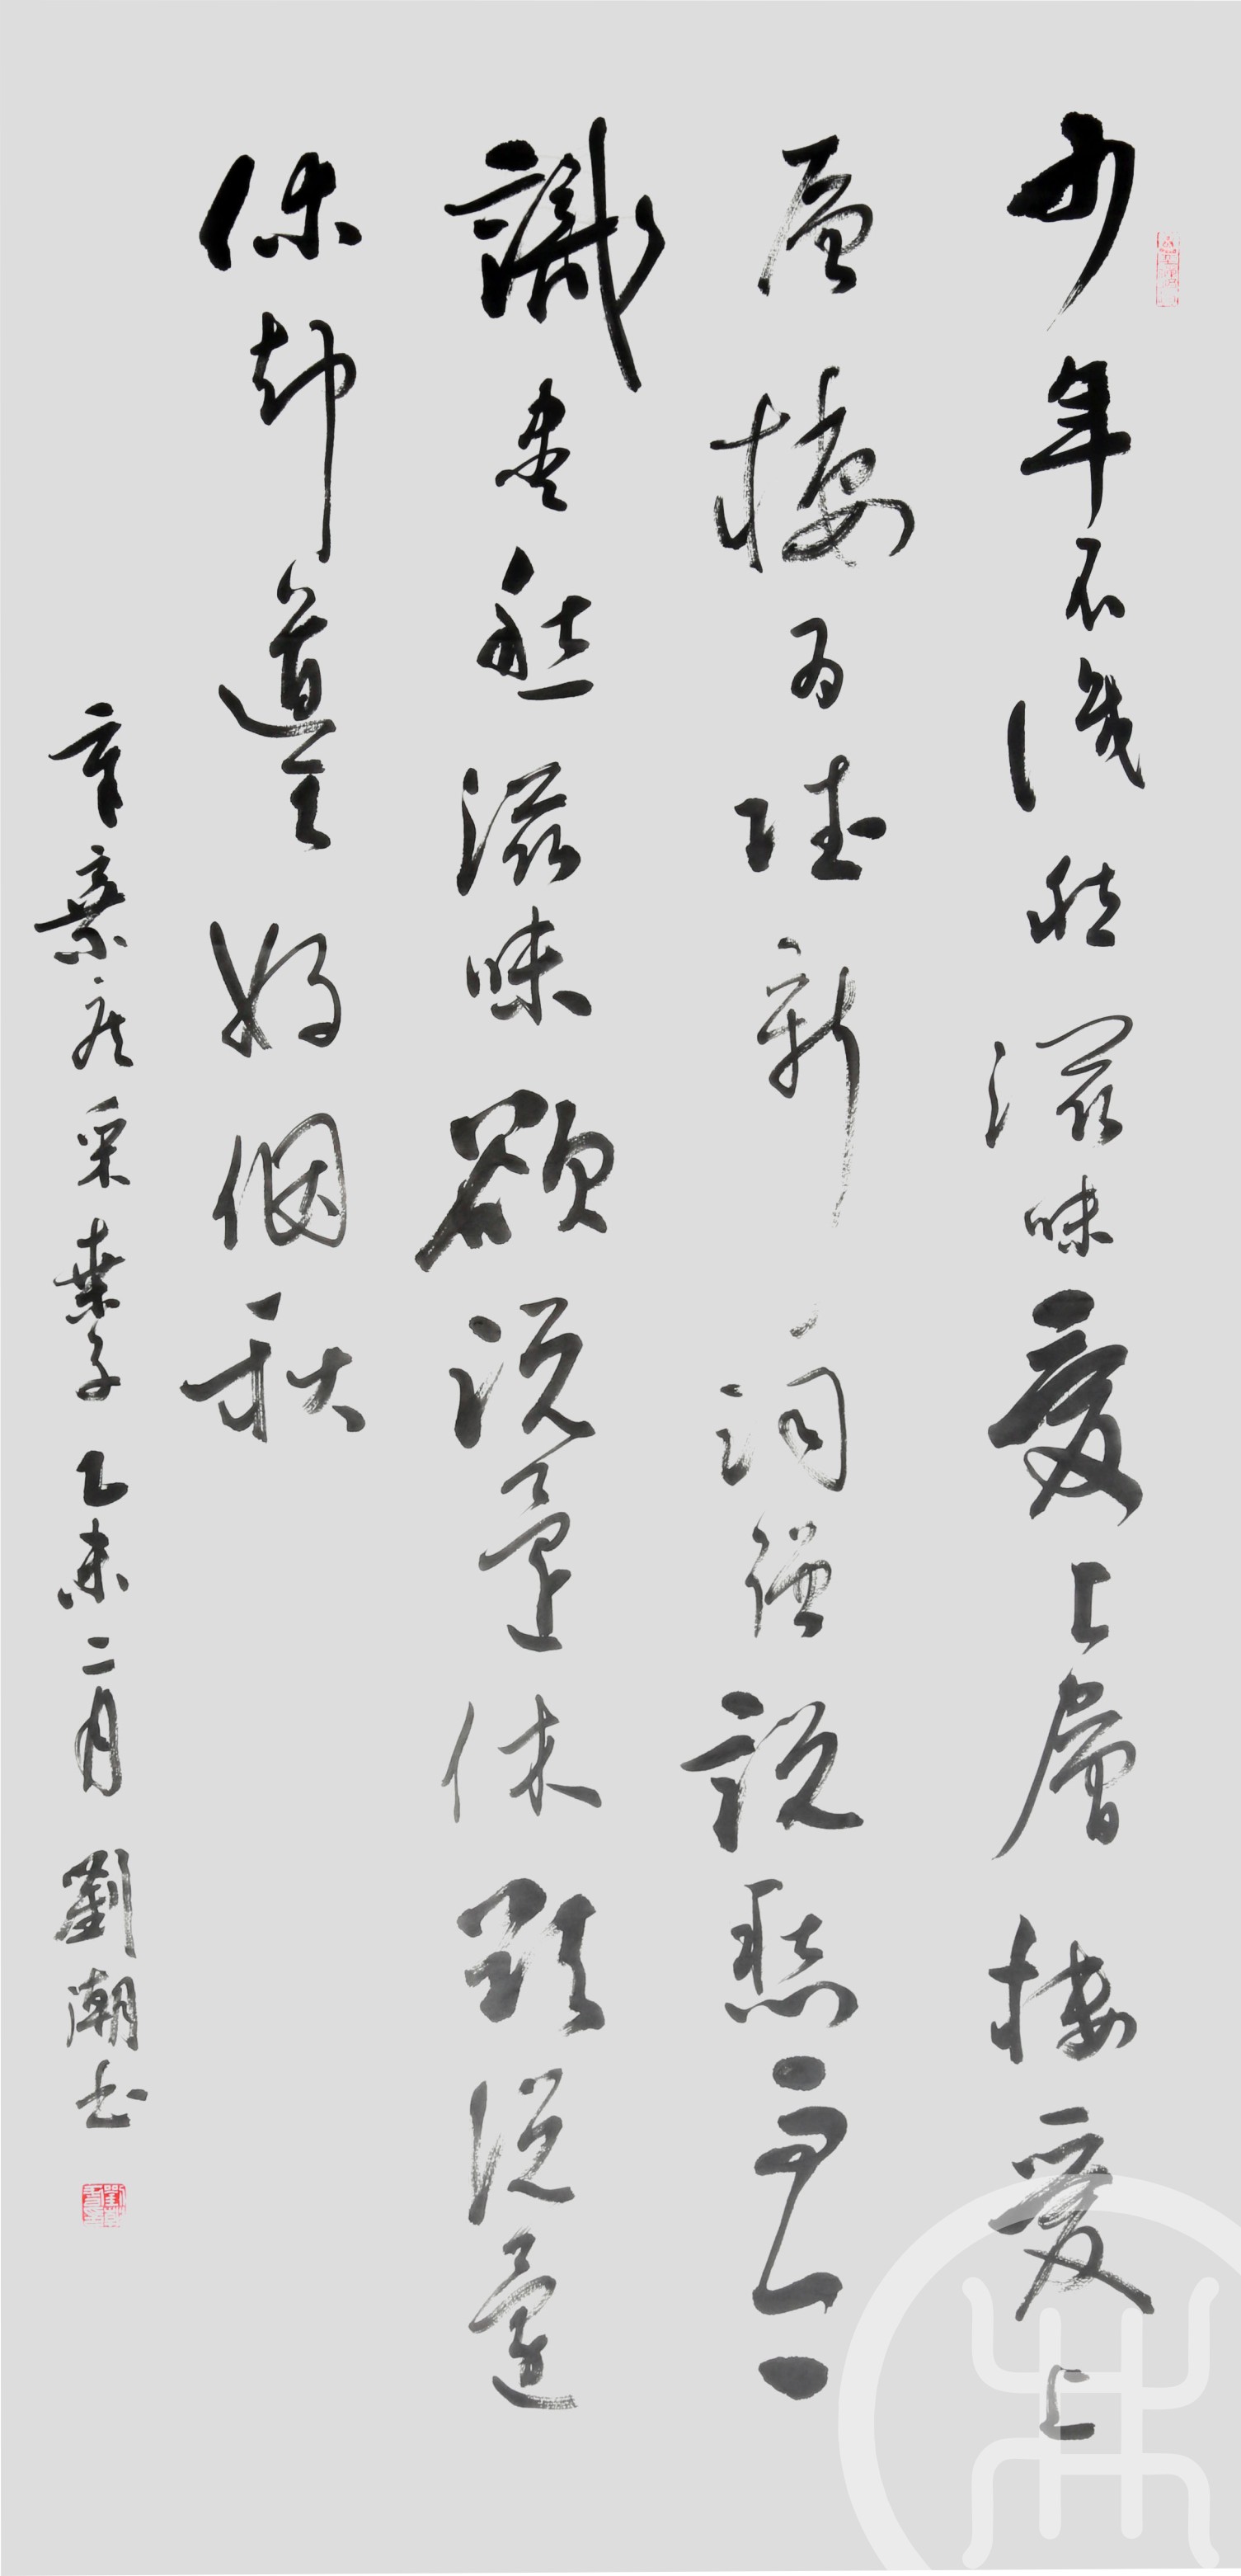 少年不識愁滋味愛上層樓愛上
層樓为賦新詞強說愁而今
識盡愁滋味欲說還休欲說還
休却道天好個秋
辛棄疾采桑子乙未二月 劉潮书